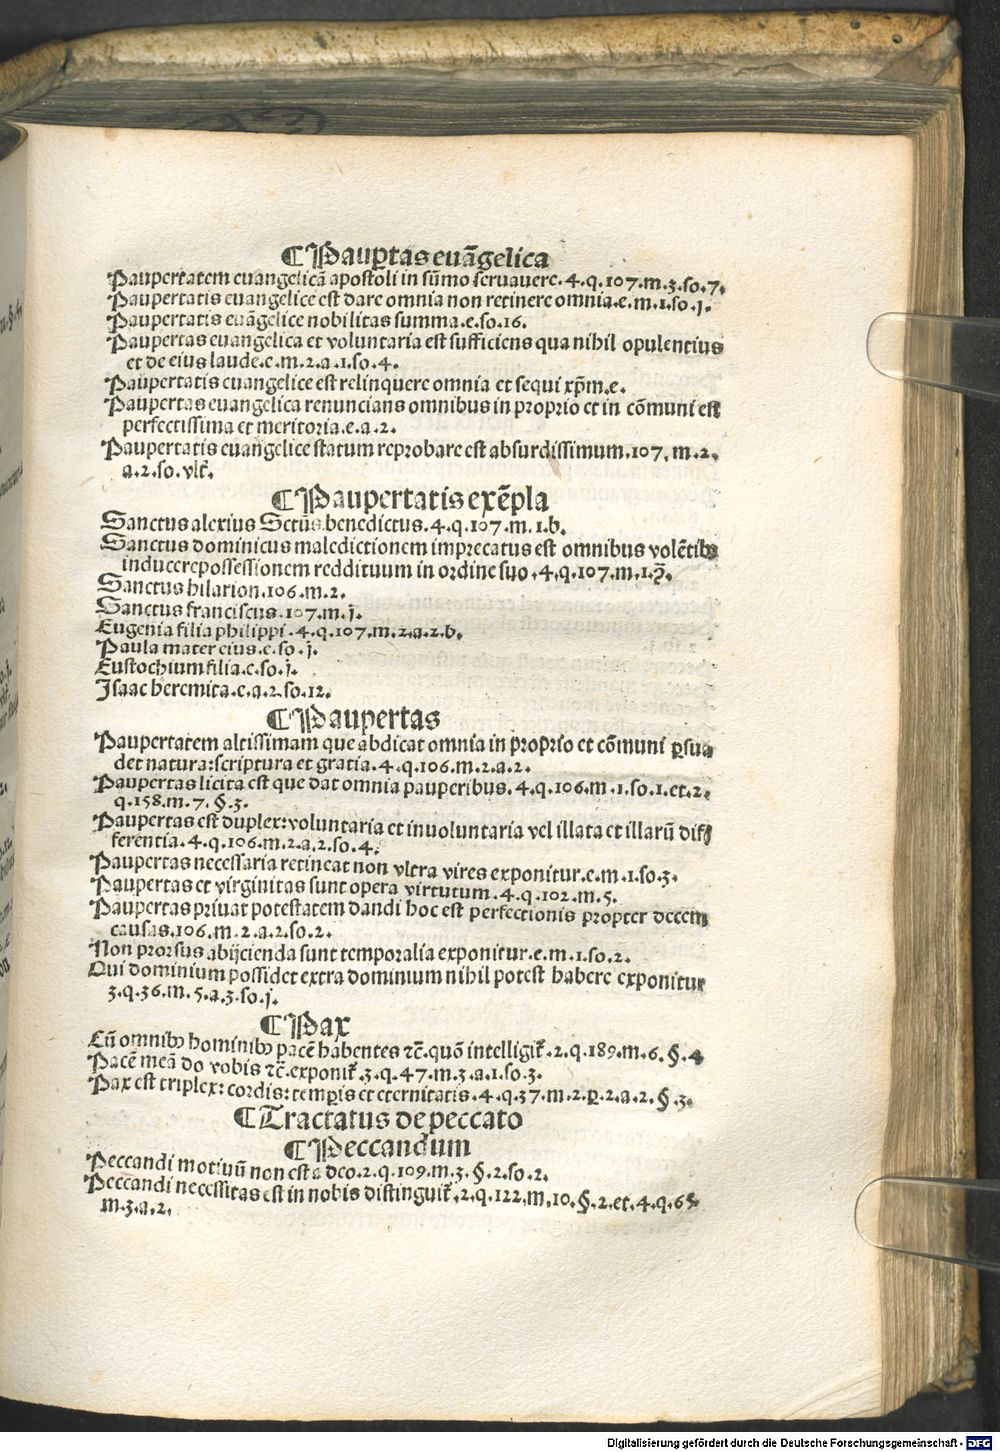 ¶ Paup̱tas euãgelica
Paupertatem euangelicã apostoli in sũmo seruauere. 4. q. 107. m. 3. so. 7.
Paupertatis euangelice est dare omnia non retinere omnia. e. m. 1. so. j.
Paupertatis euãgelice nobilitas summa. e. so. 16.
Paupertas euangelica et voluntaria est sufficiens qua nihil opulentius
et de eius laude. e. m. 2. a. 1. so. 4.
Paupertatis euangelice est relinquere omnia et sequi xp̄m. e.
Paupertas euangelica renuncians omnibus in proprio et in cõmuni est
perfectissima et meritoria. e. a. 2.
Paupertatis euangelice statum reprobare est absurdissimum. 107. m. 2.
a. 2. so. vlt̃.
¶ Paupertatis exẽpla
Sanctus alexius Sctũs benedictus. 4. q. 107. m. 1. b.
Sanctus dominicus maledictionem imprecatus est omnibus volẽtibꝰ
inducere possessionem reddituum in ordine suo. 4. q. 107. m. 1.
Sanctus hilarion. 106. m. 2.
Sanctus franciscus. 107. m. j.
Eugenia filia philippi. 4. q. 107. m. 2. a. 2. b.
Paula mater eius. e. so. j.
Eustochium filia. e. so. j.
Isaac heremita. e. a. 2. so. 12.
¶ Paupertas
Paupertatem altissimam que abdicat omnia in proprio et cõmuni ꝑsua
det natura: scriptura et gratia. 4. q. 106. m. 2. a. 2.
Paupertas licita est que dat omnia pauperibus. 4. q. 106. m. 1. so. 1. et. 2.
q. 158. m. 7. §. 3.
Paupertas est duplex: voluntaria et inuoluntaria vel illata et illarũ dif
ferentia. 4. q. 106. m. 2. a. 2. so. 4.
Paupertas necessaria retineat non vltra vires exponitur. e. m. 1. so. 3.
Paupertas et virginitas sunt opera virtutum. 4. q. 102. m. 5.
Paupertas priuat potestatem dandi hoc est perfectionis propter decem
causas. 106. m. 2. a. 2. so. 2.
Non prorsus abijcienda sunt temporalia exponitur. e. m. 1. so. 2.
Qui dominium possidet extra dominium nihil potest habere exponitur
3. q. 36. m. 5. a. 3. so. j.
¶ Pax
Cũ omnibꝰ hominibꝰ pacẽ habentes ⁊c̃. quõ intelligit̃. 2. q. 189. m. 6. §. 4
Pacẽ meã do vobis ⁊c̃. exponit̃. 3. q. 47. m. 3. a. 1. so. 3.
Pax est triplex: cordis: temp̱is et eternitatis. 4. q. 37. m. 2. ꝑ. 2. a. 2. §. 3.
¶ Tractatus de peccato
¶ Peccandum
Peccandi motiuũ non est a deo. 2. q. 109. m. 3. §. 2. so. 2.
Peccandi necessitas est in nobis distinguit̃. 2. q. 122. m. 10. §. 2. et. 4. q. 65.
m. 3. a. 2.
Digitalisierung gefördert durch die Deutsche Forschungsgemeinschaft - DFG